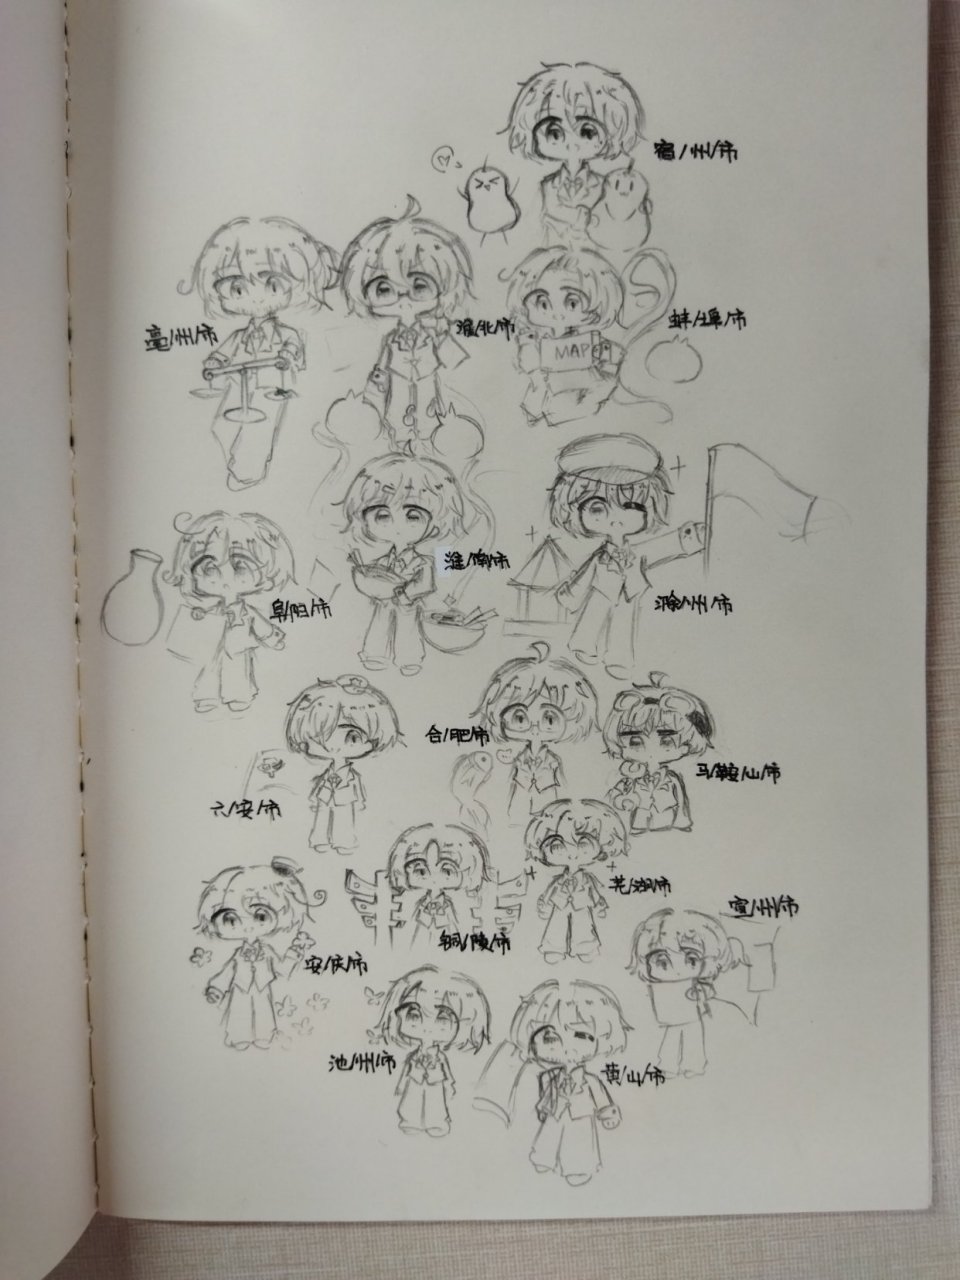 宿/州/市
亳/州/市
淮/北/市
蚌/埠/市
MAP
阜/阳/市
淮/南/市
滁/州/市
合/肥/市
六/安/市
马/鞍/山/市
芜/湖/市
宣/州/市
铜/陵/市
安/庆/市
池/州/市
黄/山/市